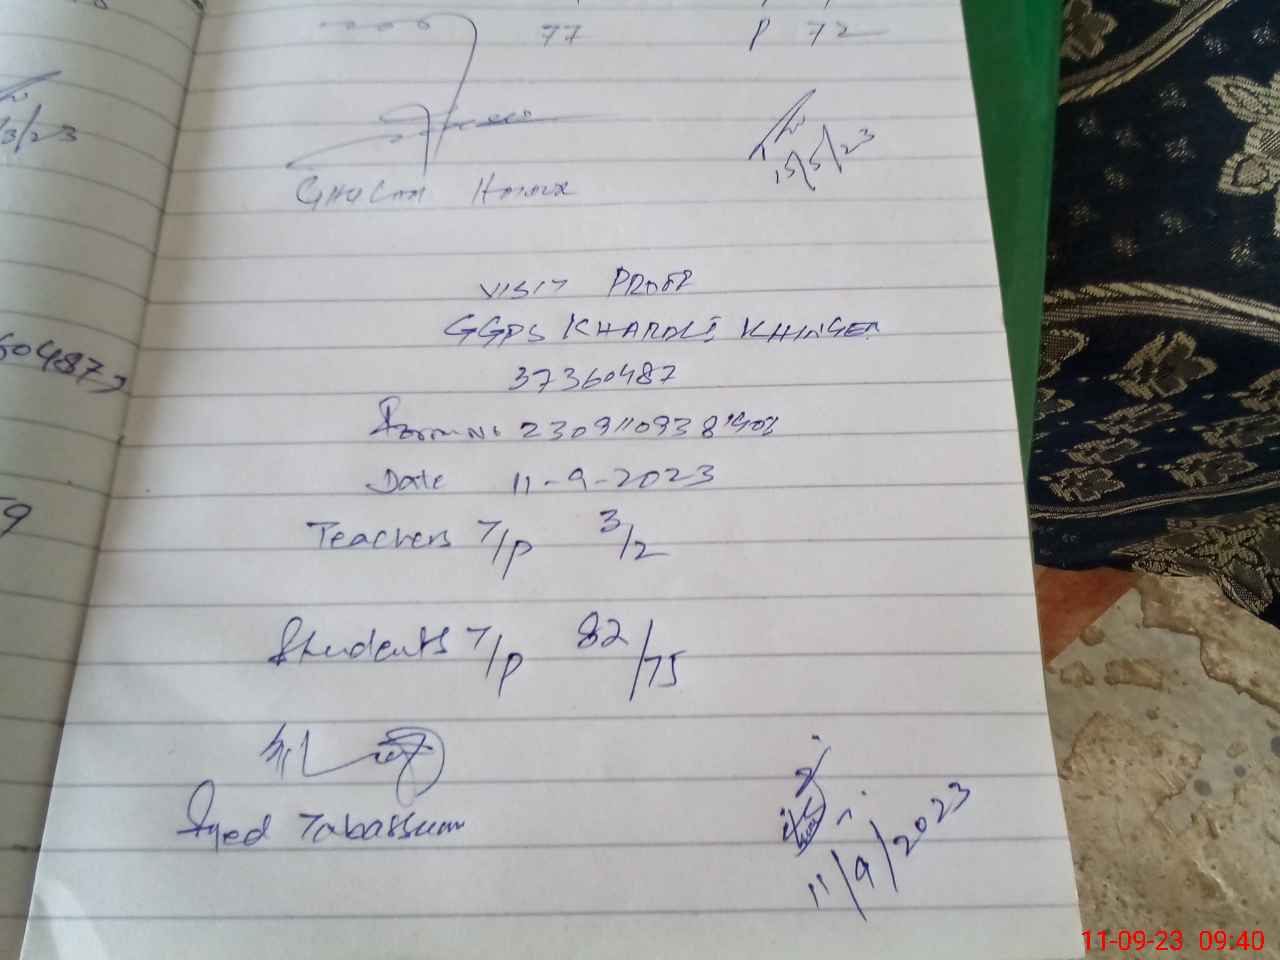 77 P 72
15/5/23
/3/23
VISIT PROFR
GGPS KHARDLI KHINGER
37360487
604872
Form No 2309110938403
Date 11-9-2023
9
Teachers T/P 3/2
Students T/P 82/75
Syed Tabassum
11/9/2023
11-09-23 09:40